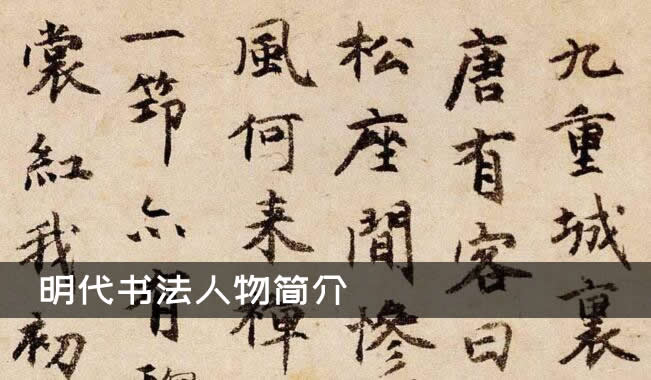 九重城裏
唐有客曰
松座間惨
風何来禅
一笻亦有
裳紅我初
明代书法人物简介